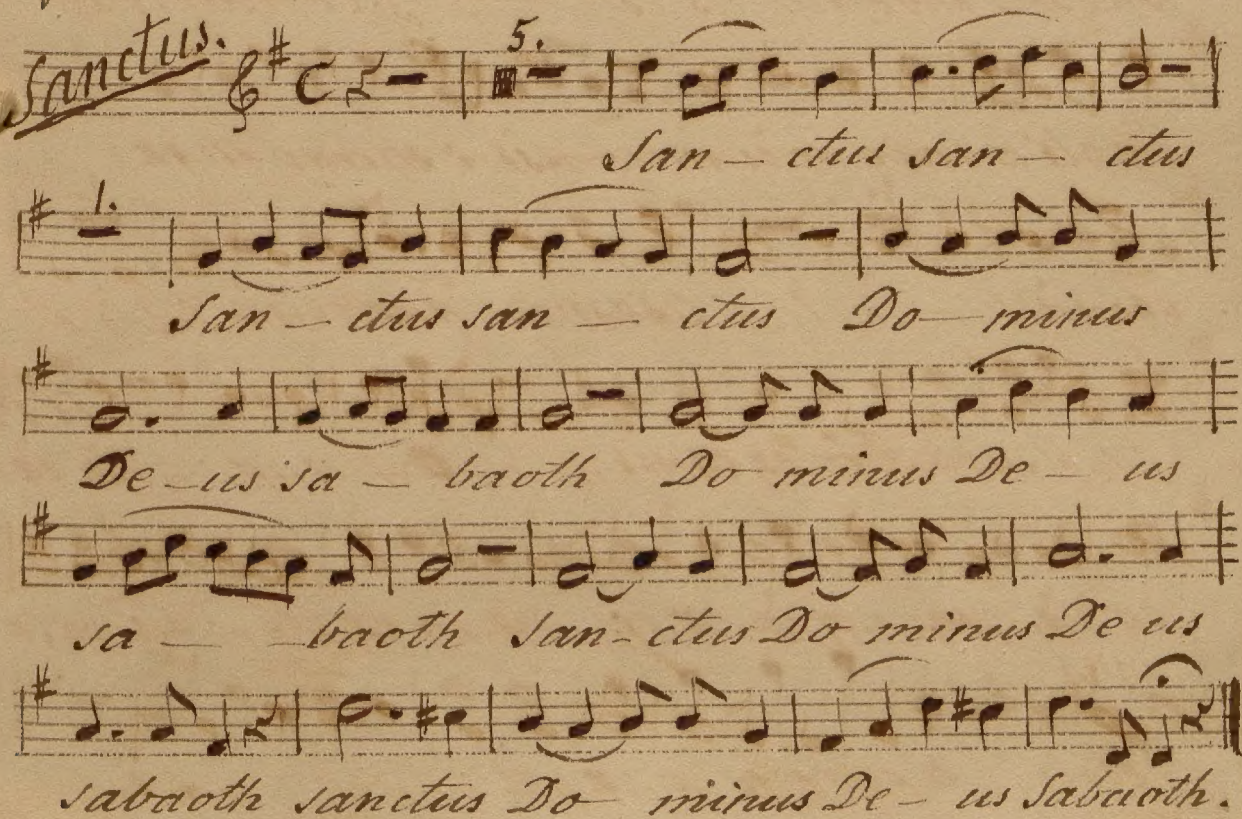 Sanctus.
5.
San – ctus san – ctus
1.
San – ctus san – ctus Do – minus
De – us sa – baoth Do minus De – us
sa – – baoth San – ctus Do minus De us
sabaoth sanctus Do minus De – us Sabaoth.